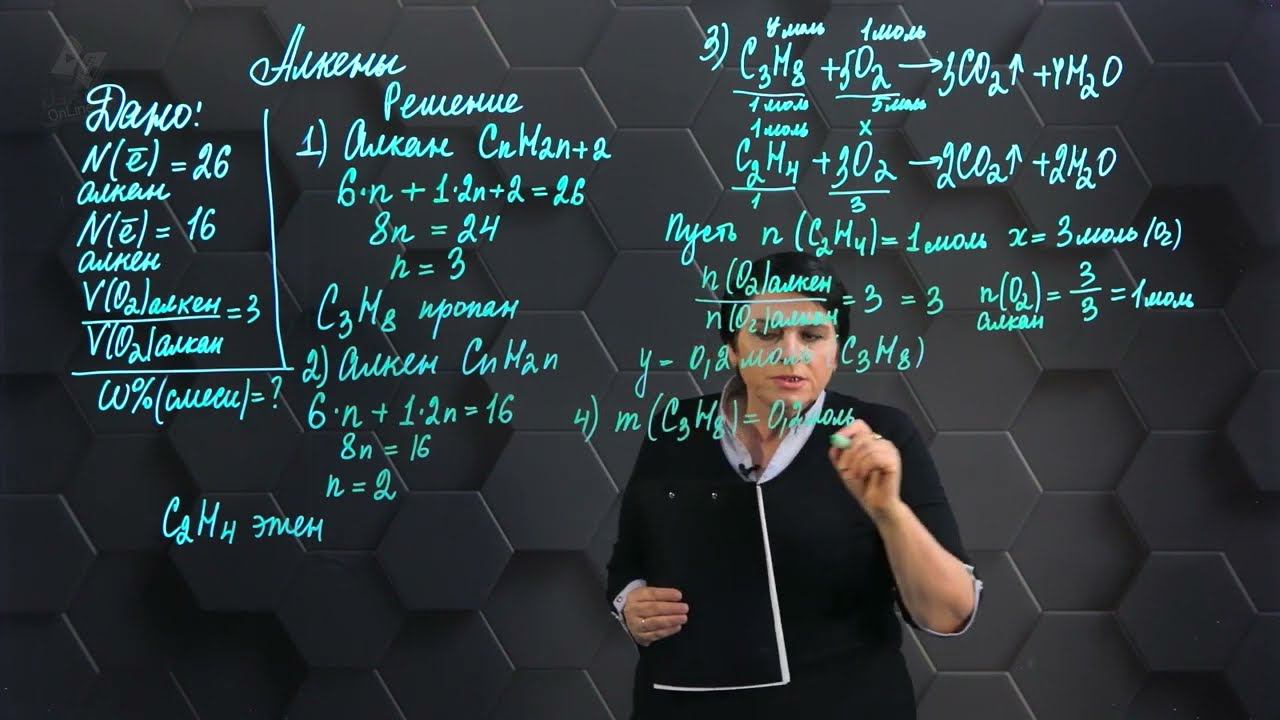 Алкены
Дано:
N(ē) = 26
алкан
N(ē) = 16
алкен
V(O₂)алкен
V(O₂)алкан
= 3
ω%(смеси) = ?
Решение
1) Алкан CnH2n+2
6·n + 1·2n+2 = 26
8n = 24
n = 3
C₃H₈ пропан
2) Алкен CnH2n
6·n + 1·2n = 16
8n = 16
n = 2
C₂H₄ этен
3)
y моль 1 моль
C₃H₈ + 5O₂ → 3CO₂↑ + 4H₂O
1 моль 5 моль
1 моль x
C₂H₄ + 3O₂ → 2CO₂↑ + 2H₂O
1 3
Пусть n (C₂H₄) = 1 моль x = 3 моль (O₂)
n (O₂)алкен
n (O₂)алкан
= 3 = 3
n(O₂) = 3/3 = 1 моль
алкан
y = 0,2 моль (C₃H₈)
4) m (C₃H₈) = 0,2 моль
OnLine